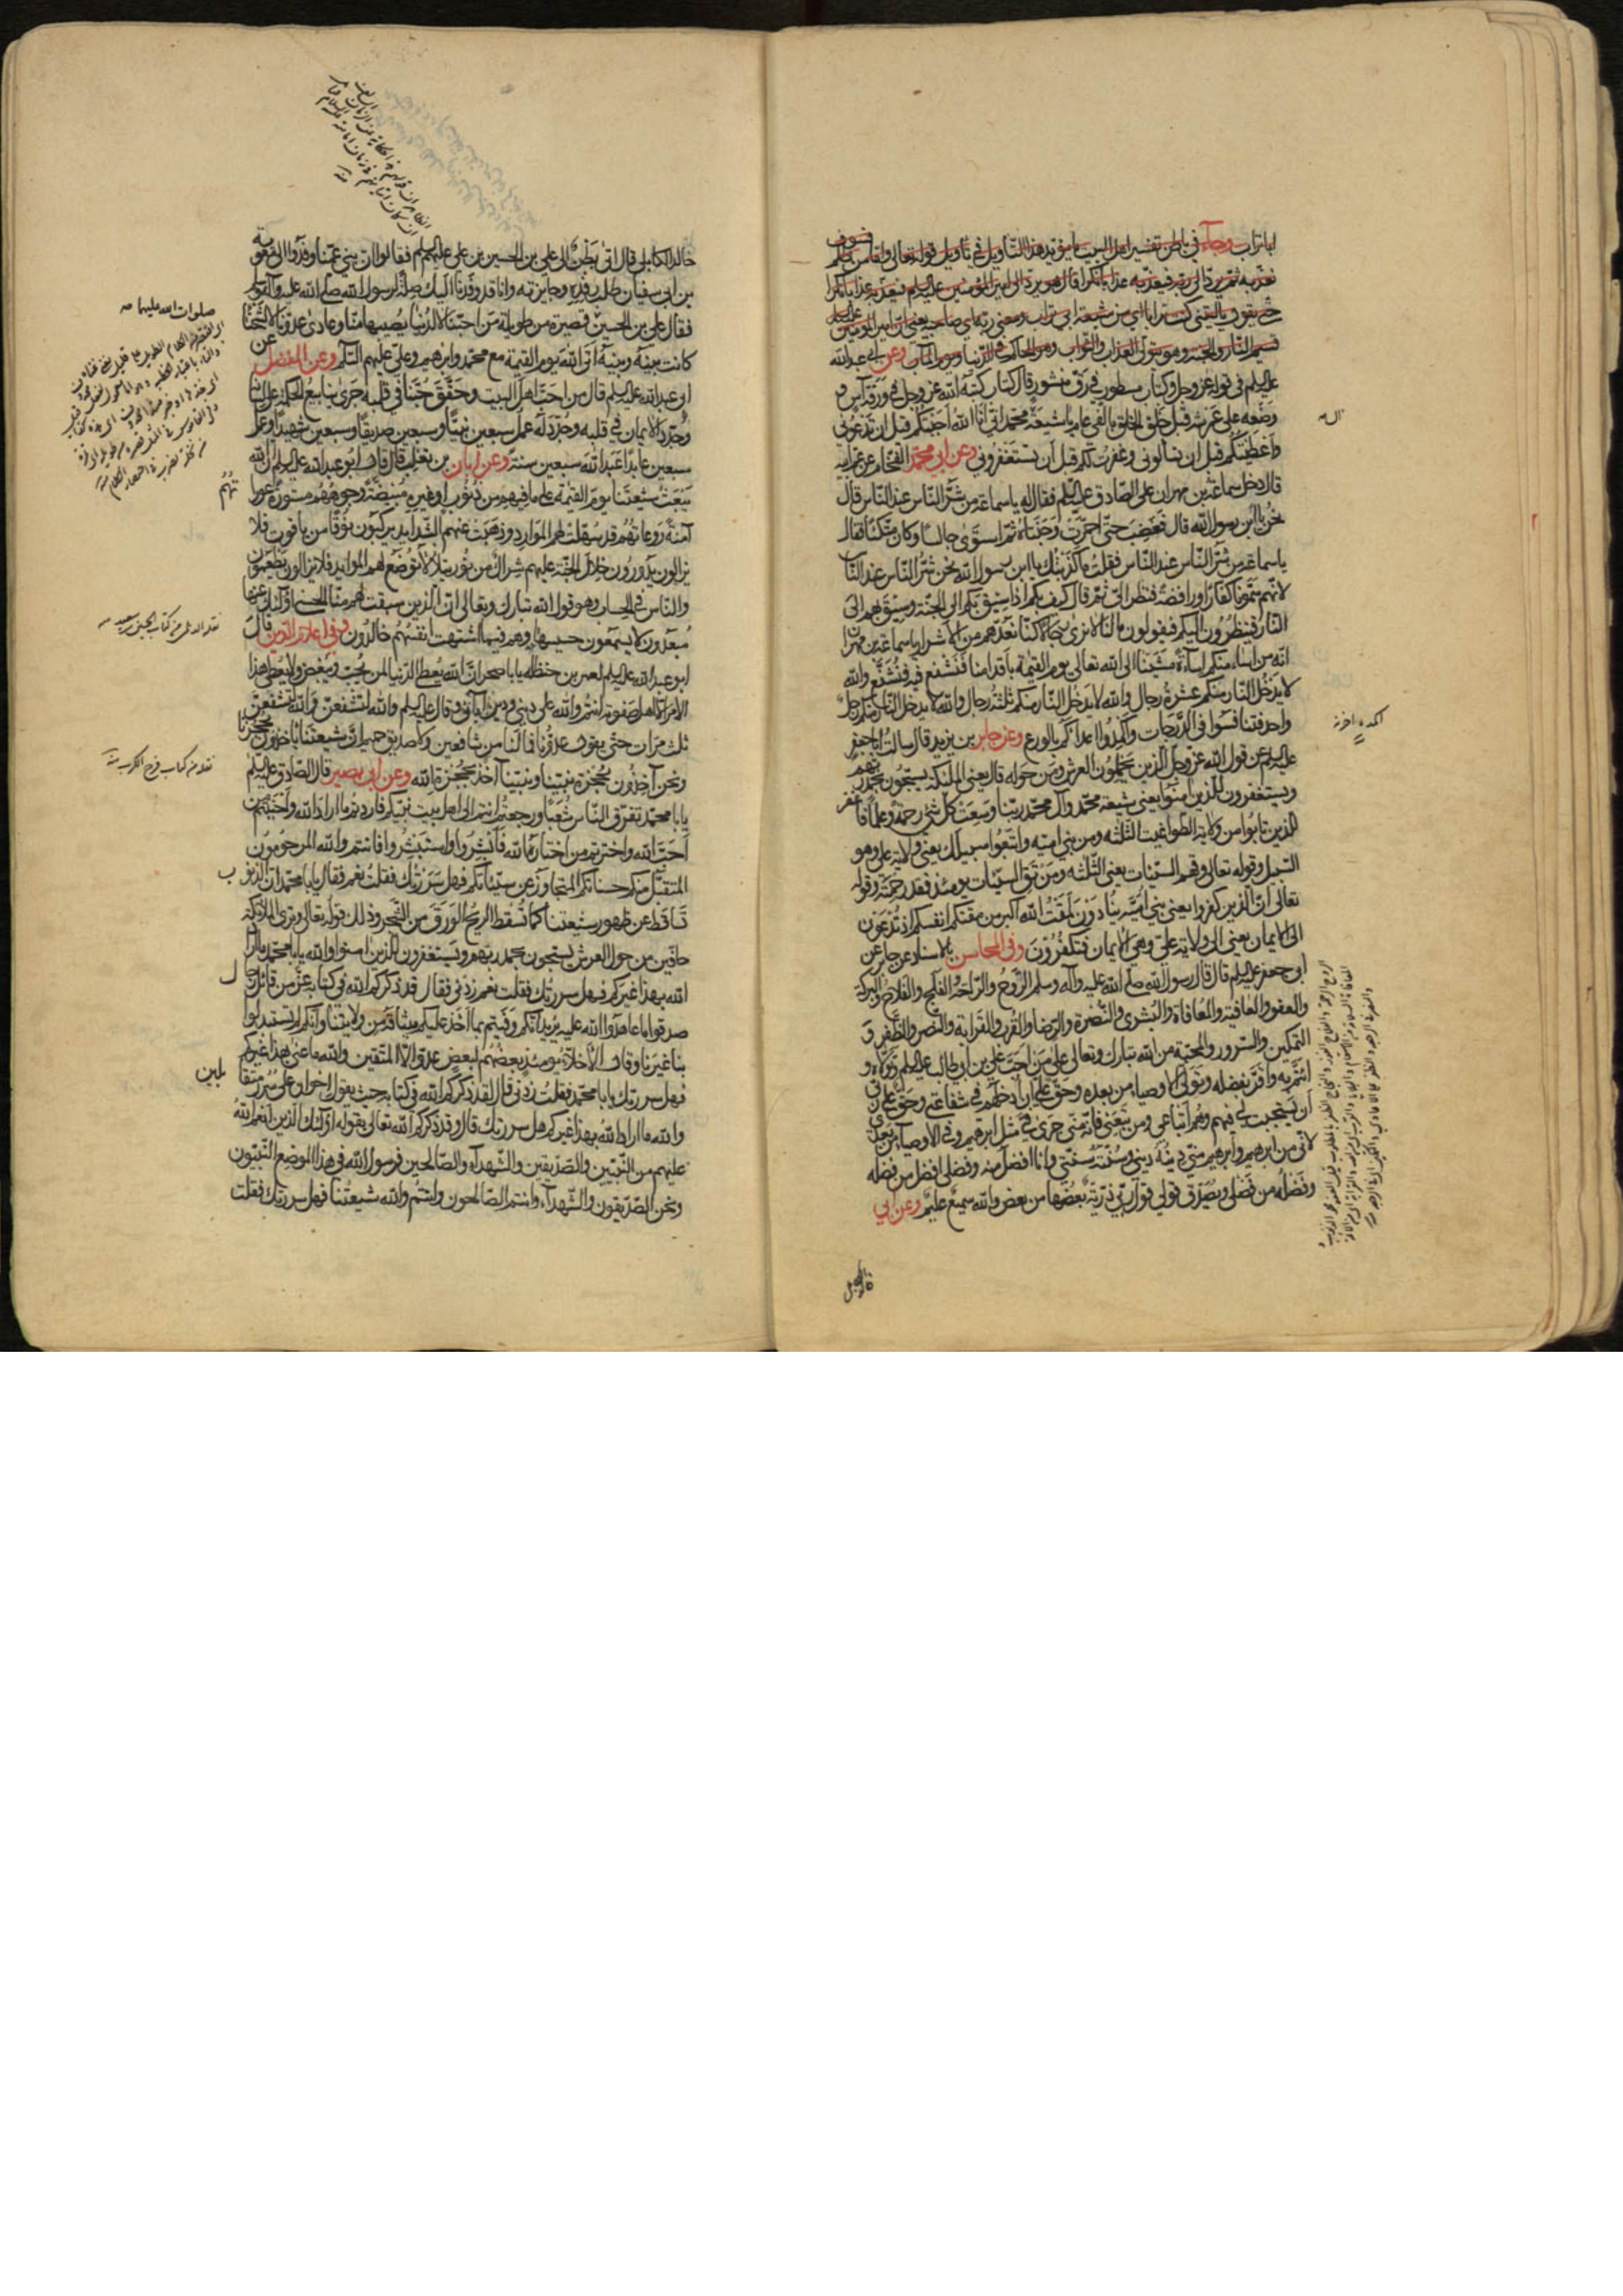 ابا تراب وجاء في باطن تفسير اهل البيت ما يؤيد هذا التأويل في تأويل قوله تعالى واما من ظلم فسوف
نعذبه ثم يرد الى ربه فيعذبه عذابا نكرا قال هو يرد الى امير المؤمنين عليه السلم فيعذبه عذابا نكرا
حتى يقول يا ليتني كنت ترابا اي من شيعة ابي تراب ومعنى ربه اي صاحبه يعني ان امير المؤمنين عليه السلم
قسيم النار والجنة وهو يتولى العذاب والثواب وهو الحاكم في الدنيا ويوم المآب وعن ابي عبد الله
عليه السلم في قوله عز وجل وكتاب مسطور في رق منشور قال كتاب كتبه الله عز وجل في ورقة آس و
وضعه على عرشه قبل خلق الخلق بالفي عام يا شيعة محمد اني انا الله اجبتكم قبل ان تدعوني
واعطيتكم قبل ان تسألوني وغفرت لكم قبل ان تستغفروني وعن ابي محمد الفحام عن عم ابيه
قال دخل سماعة بن مهران على الصادق عليه السلم فقال له يا سماعة من شر الناس عند الناس قال
نحن يا ابن رسول الله قال فغضب حتى احمرت وجنتاه ثم استوى جالسا وكان متكئا فقال
يا سماعة من شر الناس عند الناس فقلت ما كذبتك يا ابن رسول الله نحن شر الناس عند الناس
لانهم سمونا كفارا ورافضة فنظر الي ثم قال كيف بكم اذا سيق بكم الى الجنة وسيق بهم الى
النار فينظرون اليكم فيقولون ما لنا لا نرى رجالا كنا نعدهم من الاشرار يا سماعة بن مهران
انه من اساء منكم اساءة مشينا الى الله تعالى يوم القيمة باقدامنا فنشفع فيه فنشفع والله
لا يدخل النار منكم عشرة رجال والله لا يدخل النار منكم ثلثة رجال والله لا يدخل النار منكم رجل
واحد فتنافسوا في الدرجات واكمدوا اعداءكم بالورع وعن جابر بن يزيد قال سالت ابا جعفر
عليه السلم عن قول الله عز وجل الذين يحملون العرش ومن حوله قال يعني الملئكة يسبحون بحمد ربهم
ويستغفرون للذين امنوا يعني شيعة محمد وآل محمد ربنا وسعت كل شئ رحمة وعلما فاغفر
للذين تابوا من ولاية الطواغيت الثلثة ومن بني امية واتبعوا سبيلك يعني ولاية علي وهو
السبيل وقوله تعالى وقهم السيئات يعني الثلثة ومن تق السيئات يومئذ فقد رحمته وقوله
تعالى ان الذين كفروا يعني بني امية ينادون لمقت الله اكبر من مقتكم انفسكم اذ تدعون
الى الايمان يعني الى ولاية علي وهي الايمان فتكفرون وفي المحاسن بالاسناد عن جابر عن
ابي جعفر عليه السلم قال قال رسول الله صلى الله عليه وآله وسلم الروح والراحة والفلج والفلاح والبركة
والعفو والعافية والمعافاة والبشرى والنضرة والرضا والقرب والقرابة والنصر والظفر و
التمكين والسرور والمحبة من الله تبارك وتعالى على من احب علي بن ابي طالب عليه السلم وتولاه و
ائتم به واقر بفضله وتولى الاوصياء من بعده وحق علي ان ادخلهم في شفاعتي وحق على ربي
ان يستجيب لي فيهم وهم اتباعي ومن تبعني فانه مني جرى في مثل ابرهيم وفي الاوصياء من بعدي
لاني من ابرهيم وابرهيم مني دينه ديني وسنته سنتي وانا افضل منه وفضلي افضل من فضله
وفضله من فضلي ويصدق قولي قول ربي ذرية بعضها من بعض والله سميع عليم وعن ابي
خالد الكابلي قال اتى نفر الى علي بن الحسين بن علي عليهم السلم فقالوا ان بني عمنا وفدوا الى معوية
بن ابي سفيان طلب رفده وجايزته وانا قد وفدنا اليك صلة لرسول الله صلى الله عليه وآله وسلم
فقال علي بن الحسين قصيرة من طويلة من احبنا لا لدنيا يصيبها منا وعادى عدونا لا لشحناء
كانت بينه وبينه اتى الله يوم القيمة مع محمد وابرهيم وعلي عليهم السلم وعن المفضل عن
ابي عبد الله عليه السلم قال من احب اهل البيت وحقق حبنا في قلبه جرى ينابيع الحكمة على لسانه
وجدد الايمان في قلبه وجدد له عمل سبعين نبيا وسبعين صديقا وسبعين شهيدا وعمل
سبعين عابدا عبد الله سبعين سنة وعن ابان بن تغلب قال قال ابو عبد الله عليه السلم ان الله
يبعث شيعتنا يوم القيمة على ما فيهم من ذنوب او غيره مبيضة وجوههم مستورة عوراتهم
آمنة روعاتهم قد سهلت لهم الموارد وذهبت عنهم الشدايد يركبون نوقا من ياقوت فلا
يزالون يدورون خلال الجنة عليهم شراك من نور يتلالأ توضع لهم الموايد فلا يزالون يطعمون
والناس في الحساب وهو قول الله تبارك وتعالى ان الذين سبقت لهم منا الحسنى اولئك عنها
مبعدون لا يسمعون حسيسها وهم فيما اشتهت انفسهم خالدون وفي اعلام الدين قال
ابو عبد الله عليه السلم لعمر بن حنظلة يا با صخر ان الله يعطي الدنيا لمن يحب ويبغض ولا يعطي هذا
الامر الا اهل صفوته انتم والله على ديني ودين آبائي وقال عليه السلم والله لنشفعن والله لنشفعن
ثلث مرات حتى يقول عدونا فما لنا من شافعين ولا صديق حميم ان شيعتنا ياخذون بحجزنا
ونحن آخذون بحجزة نبينا ونبينا آخذ بحجزة الله وعن ابي بصير قال الصادق عليه السلم
يا با محمد تفرق الناس شعبا ورجعتم انتم الى اهل بيت نبيكم فاردتم ما اراد الله واحببتم من
احب الله واخترتم من اختاره الله فابشروا واستبشروا فانتم والله المرحومون
المتقبل منكم حسناتكم المتجاوز عن سيئاتكم فهل سررتك فقلت نعم فقال يا با محمد ان الذنوب
تساقط عن ظهور شيعتنا كما تسقط الريح الورق من الشجر وذلك قوله تعالى وترى الملائكة
حافين من حول العرش يسبحون بحمد ربهم ويستغفرون للذين امنوا والله يا با محمد ما اراد
الله بهذا غيركم فهل سررتك فقلت نعم زدني فقال قد ذكركم الله في كتابه عز من قائل رجال
صدقوا ما عاهدوا الله عليه يريد انكم وفيتم بما اخذ عليكم ميثاقه من ولايتنا وانكم لم تستبدلوا
بنا غيرنا وقال الأخلاء يومئذ بعضهم لبعض عدو الا المتقين والله ما عنى بهذا غيركم
فهل سررتك يا با محمد فقلت زدني قال لقد ذكركم الله في كتابه حيث يقول اخوانا على سرر متقابلين
والله ما اراد الله بهذا غيركم هل سررتك قال وقد ذكركم الله تعالى بقوله اولئك الذين انعم الله
عليهم من النبيين والصديقين والشهداء والصالحين فرسول الله في هذا الموضع النبيون
ونحن الصديقون والشهداء وانتم الصالحون وانتم والله شيعتنا فهل سررتك فقلت
صلوات الله عليهما